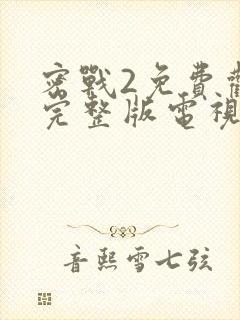 密戰2免費
完整版電視
音熙雪七弦